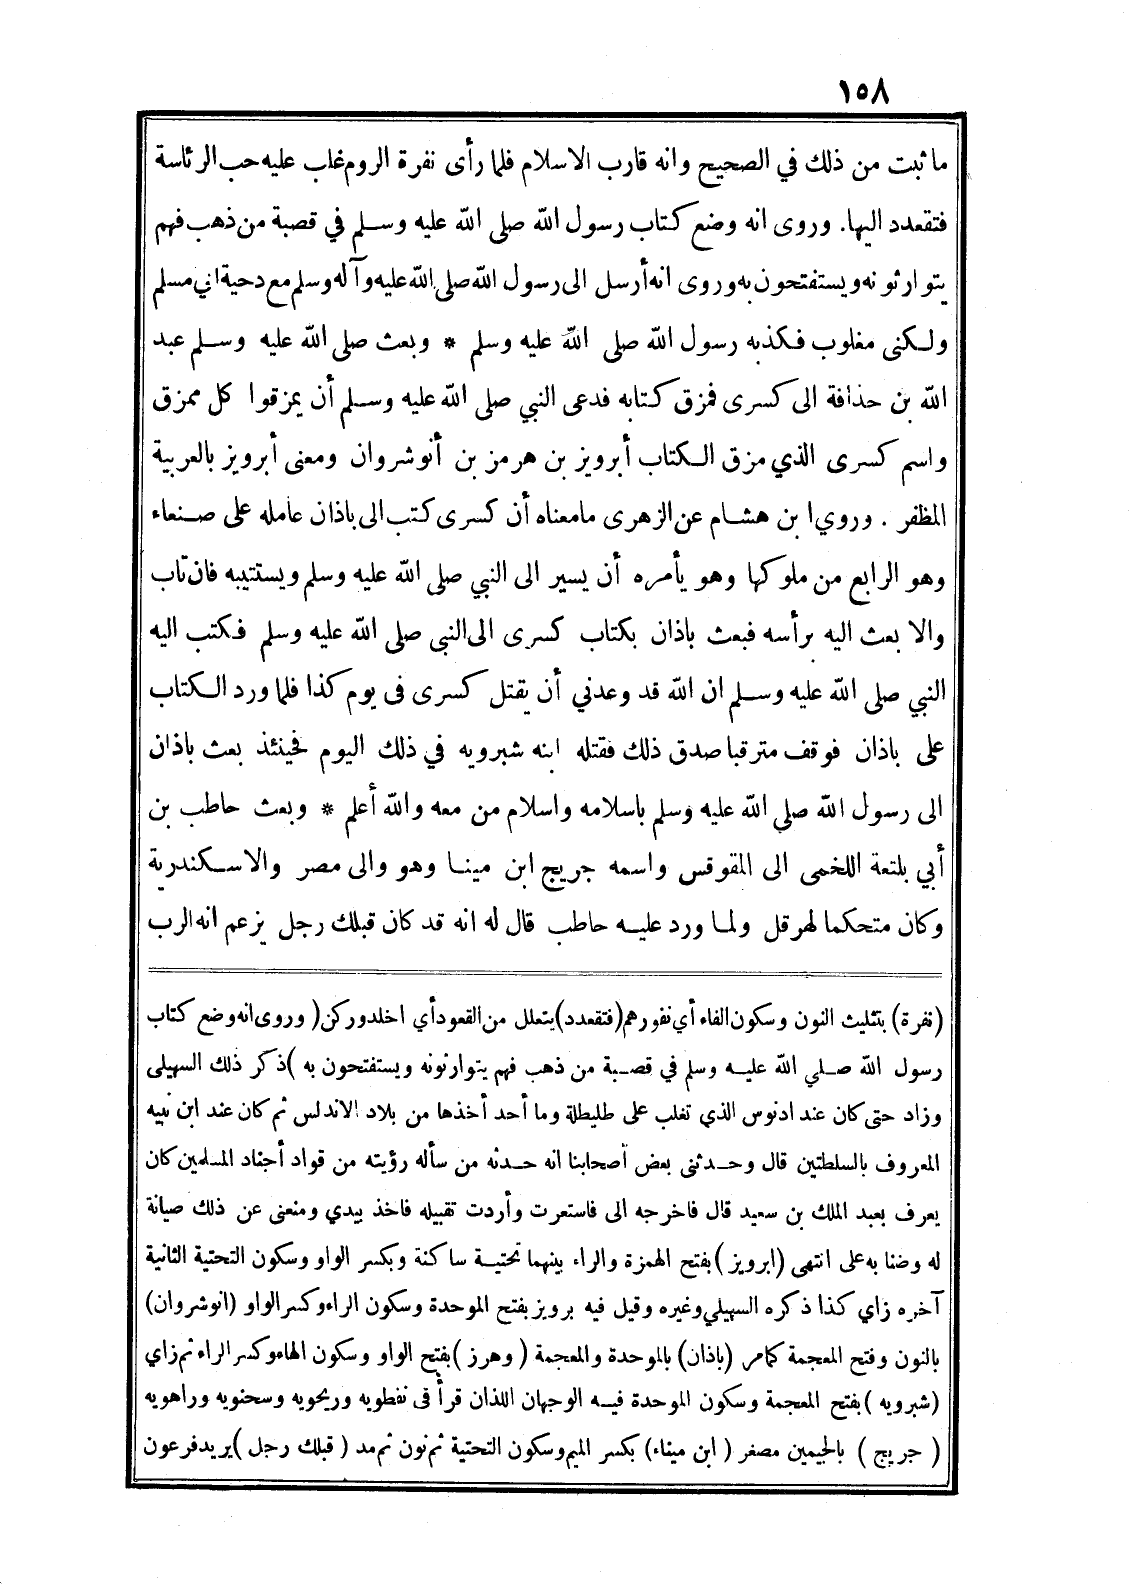 ١٥٨
ما ثبت من ذلك في الصحيح وانه قارب الاسلام فلما رأى نفرة الروم غلب عليه حب الرئاسة
فتقعدد اليها. وروى انه وضع كتاب رسول الله صلى الله عليه وسلم في قصبة من ذهب فهم
يتوارثونه ويستفتحون به وروى انه أرسل الى رسول الله صلى الله عليه وآله وسلم مع دحية اني مسلم
ولكنى مغلوب فكذبه رسول الله صلى الله عليه وسلم * وبعث صلى الله عليه وسلم عبد
الله بن حذافة الى كسرى فمزق كتابه فدعى النبي صلى الله عليه وسلم أن يمزقوا كل ممزق
واسم كسرى الذي مزق الكتاب أبرويز بن هرمز بن أنوشروان ومعنى أبرويز بالعربية
المظفر . وروي ابن هشام عن الزهرى ما معناه أن كسرى كتب الى باذان عامله على صنعاء
وهو الرابع من ملوكها وهو يأمره أن يسير الى النبي صلى الله عليه وسلم ويستتيبه فان تاب
والا بعث اليه برأسه فبعث باذان بكتاب كسرى الى النبي صلى الله عليه وسلم فكتب اليه
النبي صلى الله عليه وسلم ان الله قد وعدني أن يقتل كسرى فى يوم كذا فلما ورد الكتاب
على باذان فوقف مترقبا صدق ذلك فقتله ابنه شبرويه في ذلك اليوم فحينئذ بعث باذان
الى رسول الله صلي الله عليه وسلم باسلامه واسلام من معه والله أعلم * وبعث حاطب بن
أبي بلتعة اللخمى الى المقوقس واسمه جريج ابن مينا وهو والى مصر والاسكندرية
وكان متحكما لهرقل ولما ورد عليه حاطب قال له انه قد كان قبلك رجل يزعم انه الرب
(نفرة) بتثليث النون وسكون الفاء أي نفورهم (فتقعدد) يتعلل من القعود أي اخلد وركن (وروى انه وضع كتاب
رسول الله صلي الله عليه وسلم في قصبة من ذهب فهم يتوارثونه ويستفتحون به) ذكر ذلك السهيلى
وزاد حتى كان عند ادنوس الذي تغلب على طليطلة وما أحد أخذها من بلاد الاندلس ثم كان عند ابن نبيه
المعروف بالسلطتين قال وحدثنى بعض أصحابنا انه حدثه من سأله رؤيته من قواد أجناد المسلمين كان
يعرف بعبد الملك بن سعيد قال فاخرجه الى فاستعرت وأردت تقبيله فاخذ بيدي ومنعنى عن ذلك صيانة
له وضنا به على انتهى (ابرويز) بفتح الهمزة والراء بينهما تحتية ساكنة وبكسر الواو وسكون التحتية الثانية
آخره زاي كذا ذكره السهيلي وغيره وقيل فيه برويز بفتح الموحدة وسكون الراء وكسر الواو (انوشروان)
بالنون وفتح المعجمة كمامر (باذان) بالموحدة والمعجمة (وهرز) بفتح الواو وسكون الهاء وكسر الراء ثم زاي
(شبرويه) بفتح المعجمة وسكون الموحدة فيه الوجهان اللذان قرأ فى نفطويه وريحويه وسحنويه وراهويه
(جريج) بالجيمين مصغر (ابن ميناء) بكسر الميم وسكون التحتية ثم نون ثم مد (قبلك رجل) يريد فرعون